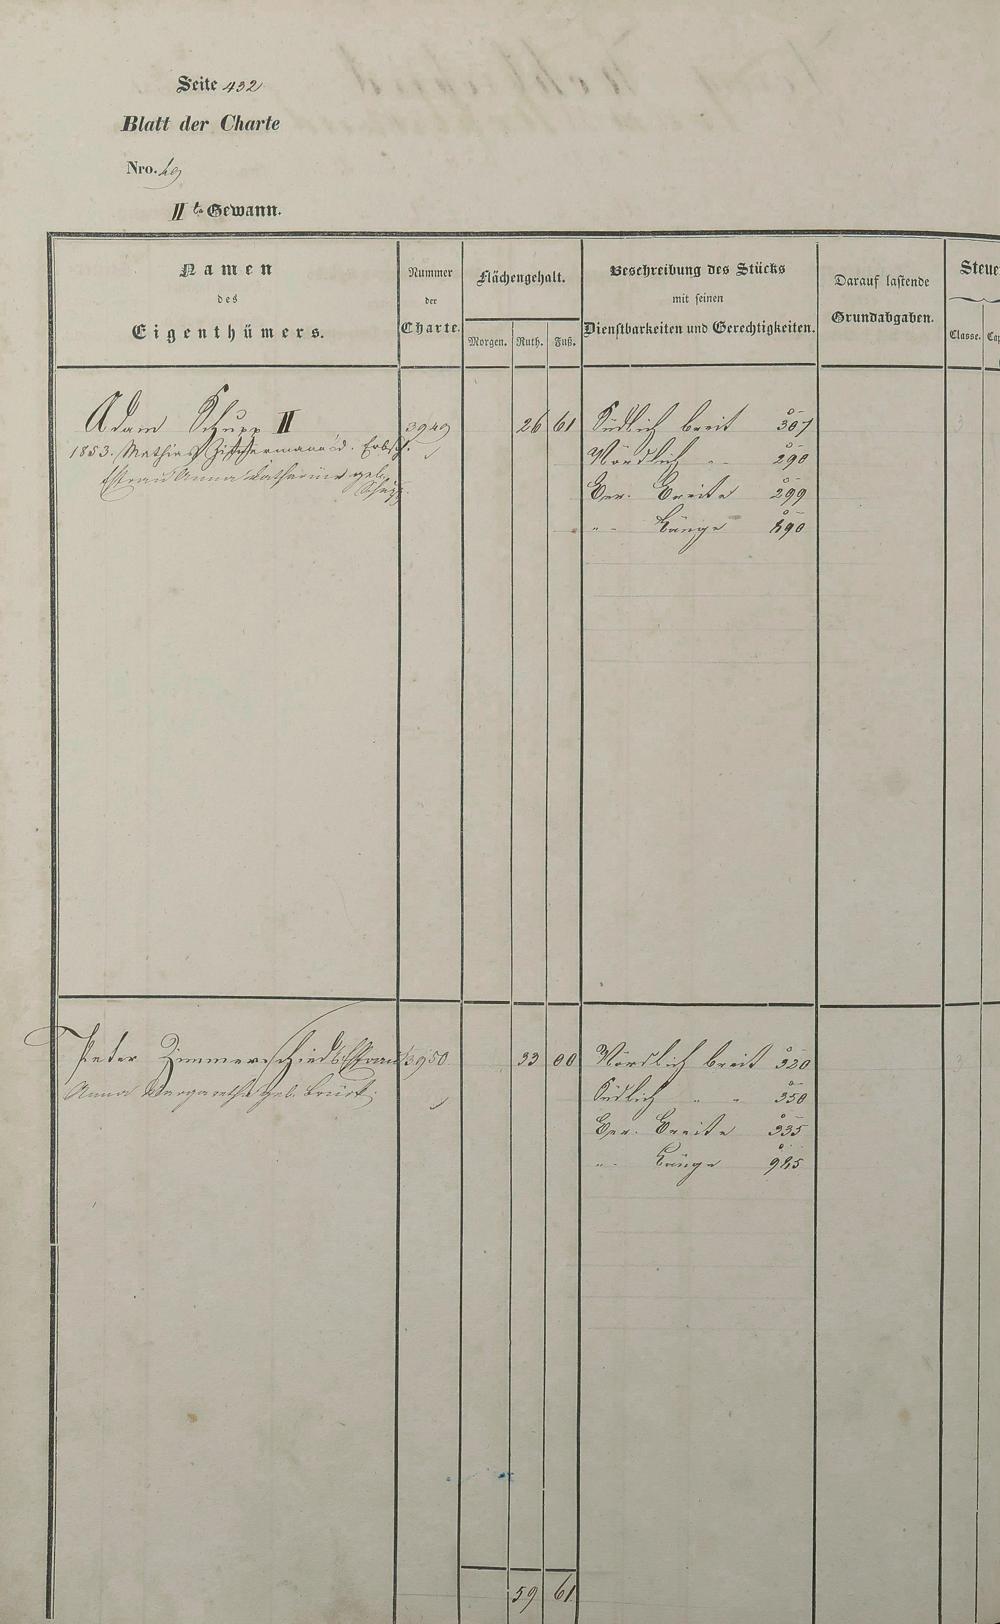 Seite 432
Blatt der Charte
Nro. 49
II te Gewann.
Namen
des
Eigenthümers.
Nummer
der
Charte.
Flächengehalt.
Morgen. Ruth. Fuß.
Beschreibung des Stücks
mit seinen
Dienstbarkeiten und Gerechtigkeiten.
Darauf lastende
Grundabgaben.
Steue
Classe. Cap
Adam Schupp II 3949 26 61 Südlich breit 307
1853. Mathias Zimmermann d. Erbsch. Nördlich " 290
Efrau Anna Catharine geb. Ger. Breite 299
Schupp. " Länge 890
Peter Zimmerschied Efrau 3950 33 00 Nördlich breit 320
Anna Margaretha geb. Brück. Südlich " " 350
Ger. Breite 335
" Länge 985
59 61